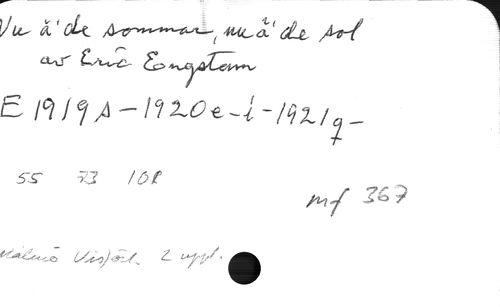 Nu ä' de sommar, nu ä' de sol
av Eric Engstam
E 1919 s - 1920 e - i - 1921 q -
55 73 108
mf 367
Malmö Visförl. 2 uppl.